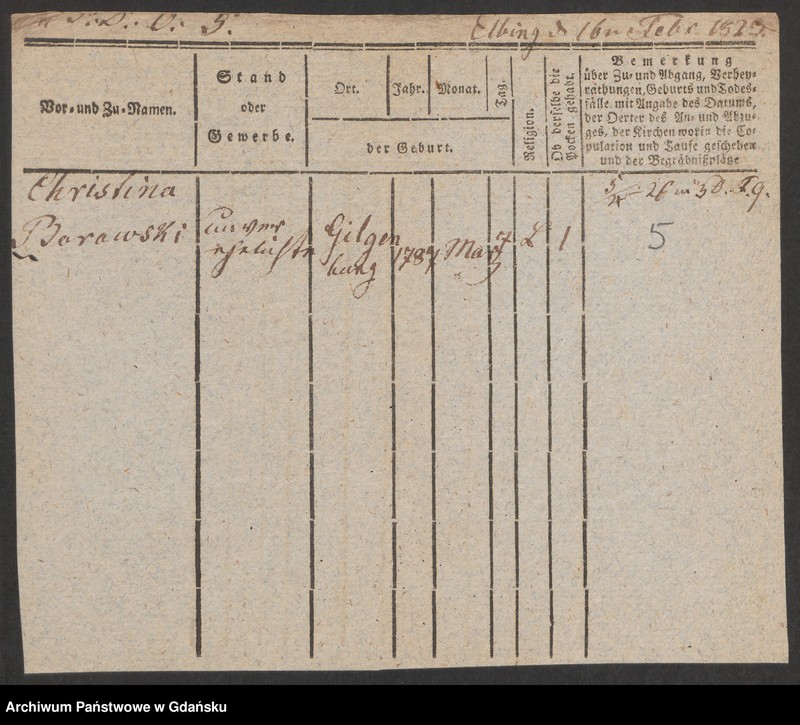 D. 5.
Elbing d 16n Febr. 1829.
Vor- und Zu-Namen.
Stand
oder
Gewerbe.
Ort.
Jahr.
Monat.
Tag.
der Geburt.
Religion.
Ob derselbe die
Pocken gehabt.
Bemerkung
über Zu- und Abgang, Verhey-
rathungen, Geburts und Todes-
fälle, mit Angabe des Datums,
der Oerter des An- und Abzu-
ges, der Kirchen worin die Co-
pulation und Taufe geschehen
und der Begräbnißplätze
Christina
Borowski
unver
ehelichte
Gilgen
burg
1787
Marz
7
L
1
5
Archiwum Państwowe w Gdańsku